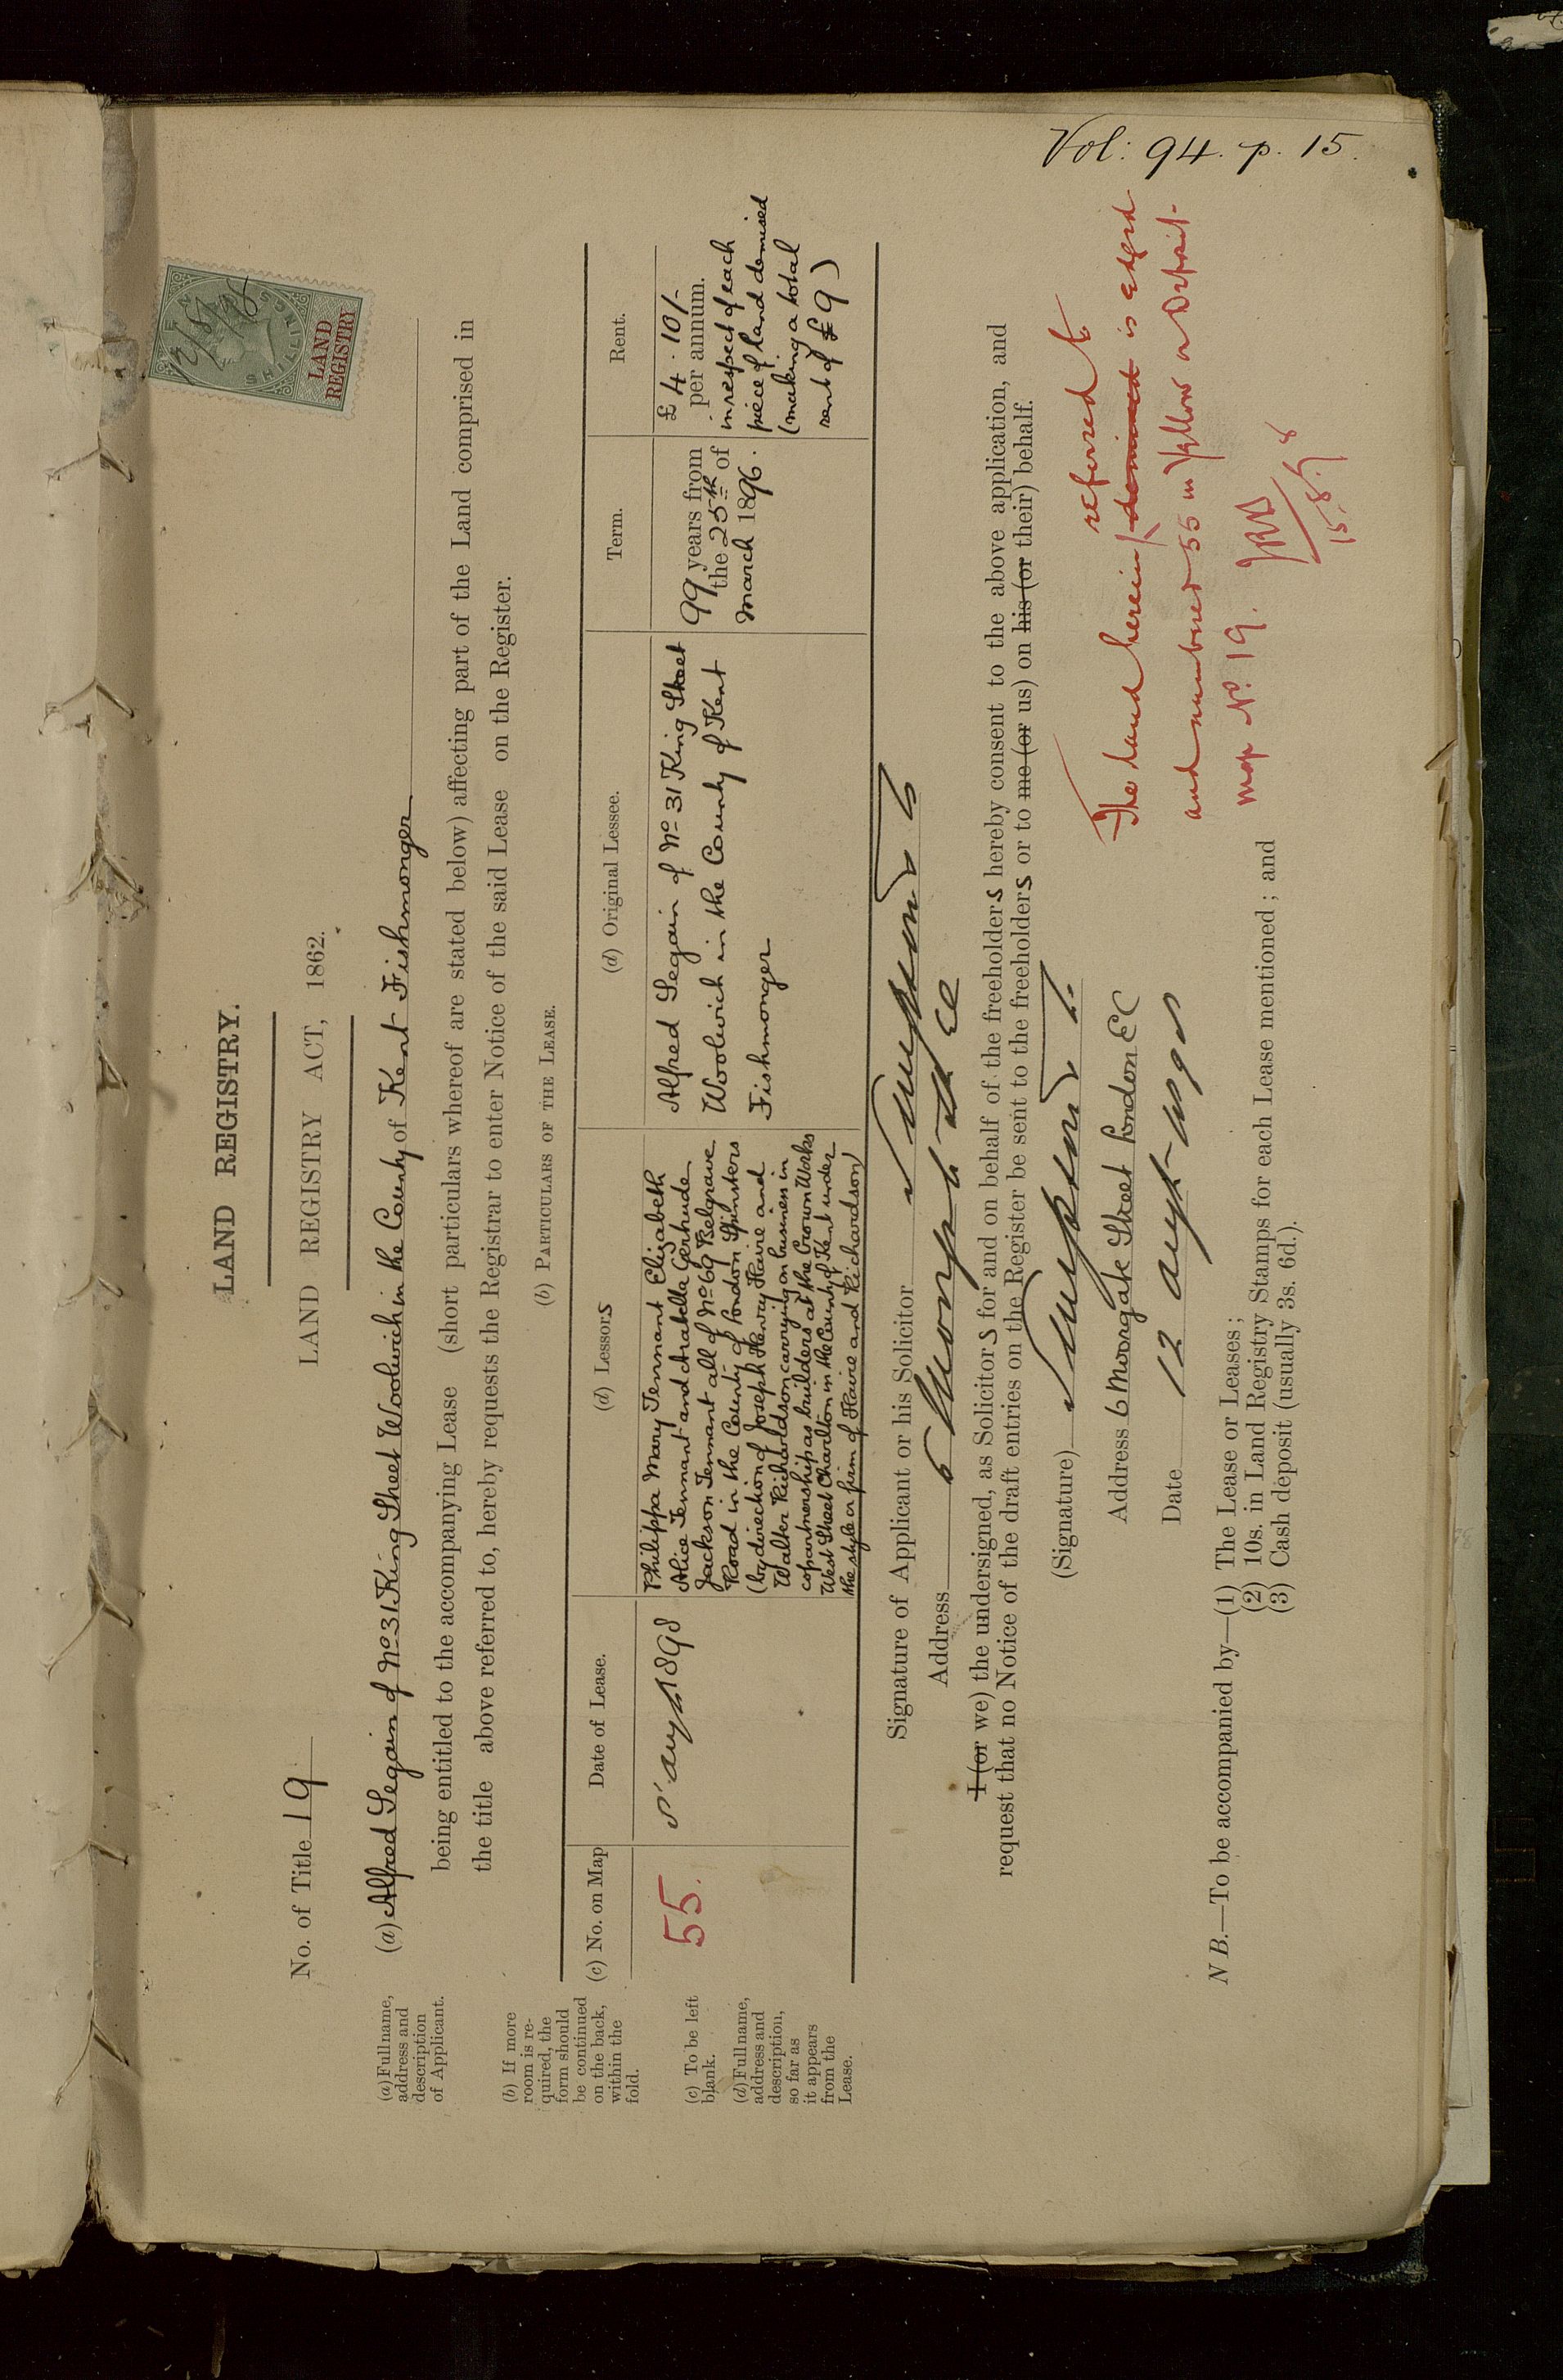 Vol: 94. p. 15.
TEN SHILLINGS
12/8/98
LAND
REGISTRY
LAND REGISTRY.
LAND REGISTRY ACT, 1862.
No. of Title 19
(a) Fullname,
address and
description
of Applicant.
(a) Alfred Segain of No 31 King Street Woolwich in the County of Kent Fishmonger
being entitled to the accompanying Lease (short particulars whereof are stated below) affecting part of the Land comprised in
the title above referred to, hereby requests the Registrar to enter Notice of the said Lease on the Register.
(b) If more
room is re-
quired, the
form should
be continued
on the back,
within the
fold.
(b) PARTICULARS OF THE LEASE.
(c) No. on Map
Date of Lease.
(d) Lessors
(d) Original Lessee.
Term.
Rent.
(c) To be left
blank.
(d) Fullname,
address and
description,
so far as
it appears
from the
Lease.
55.
Augt 1898
Philippa Mary Tennant Elizabeth
Alice Tennant and Arabella Gertrude
Jackson Tennant all of No 69 Belgrave
Road in the County of London Spinsters
(by direction of Joseph Henry Haire and
Walter Richardson carrying on business in
copartnership as builders at the Crown Works
West Street Charlton in the County of Kent under
the style or firm of Haire and Richardson)
Alfred Segain of No 31 King Street
Woolwich in the County of Kent
Fishmonger
99 years from
the 25th of
March 1896.
£4.10/-
per annum.
in respect of each
piece of land demised
(making a total
rent of £9)
Signature of Applicant or his Solicitor
Address 6 Moorgate St EC
I (or we) the undersigned, as Solicitors for and on behalf of the freeholders hereby consent to the above application, and
request that no Notice of the draft entries on the Register be sent to the freeholders or to me (or us) on his (or their) behalf.
(Signature)
Address 6 Moorgate Street London EC
Date 12 Augt 1898
referred to
The land herein demised is edged
and numbered 55 in yellow on Deposit
map No. 19.
15.8.98
N B.—To be accompanied by—(1) The Lease or Leases;
(2) 10s. in Land Registry Stamps for each Lease mentioned; and
(3) Cash deposit (usually 3s. 6d.).